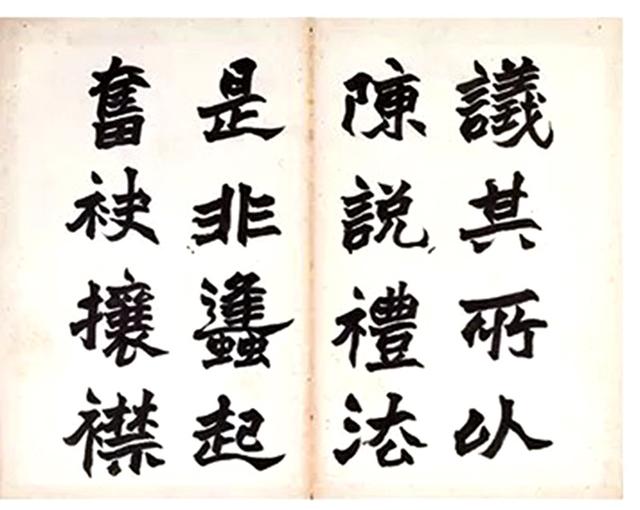 議其所以
陳説禮法
是非蠭起
奮袂攘襟